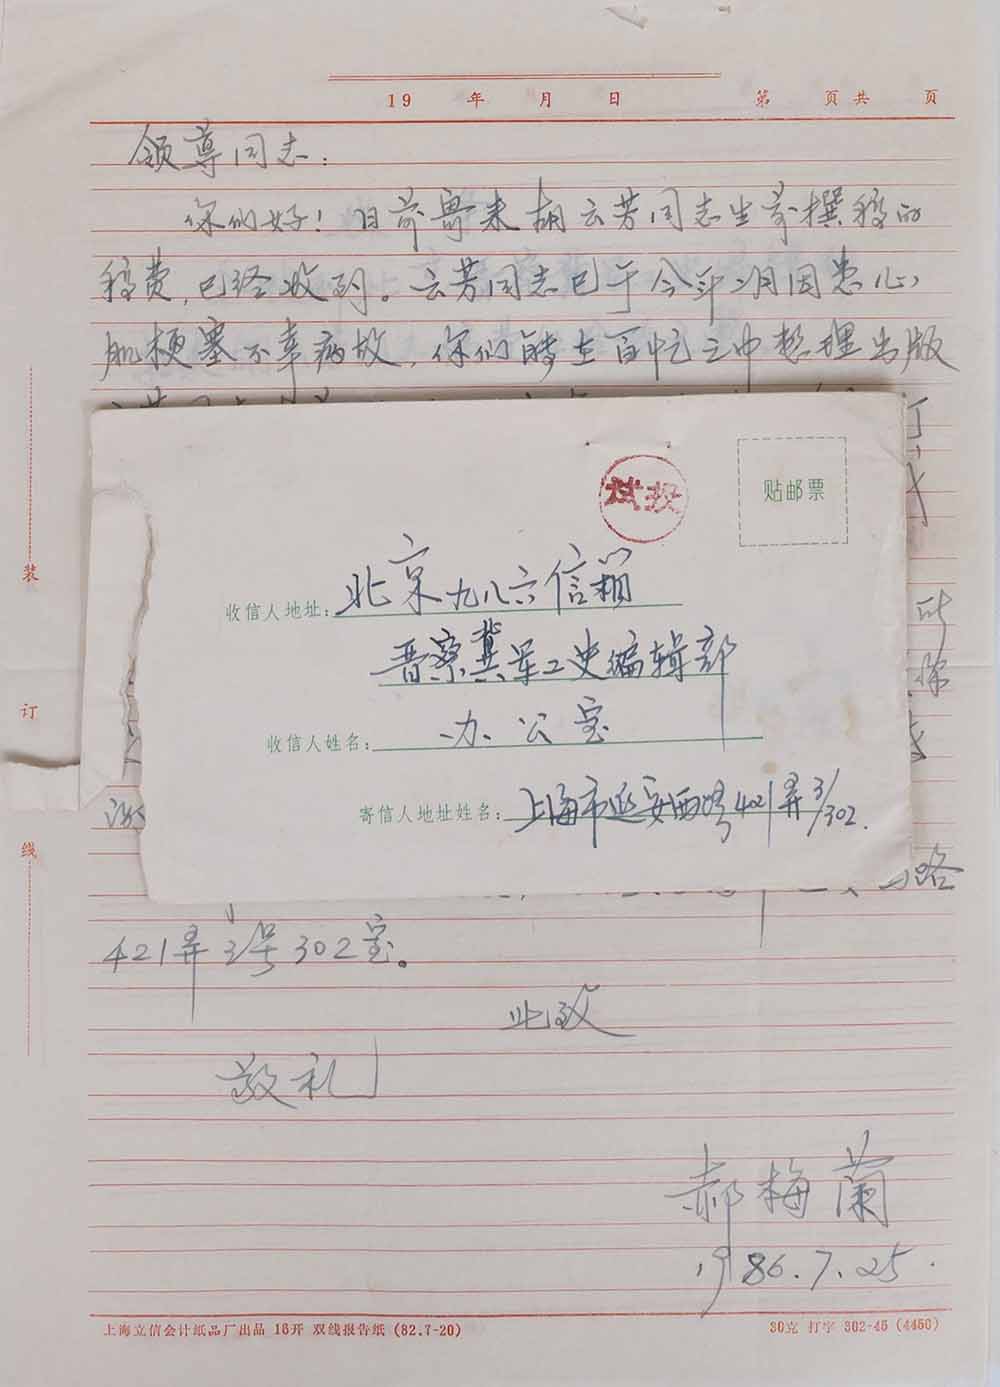 19 年 月 日 第 页共 页
领导同志：
你们好！日前寄来胡云芳同志生前撰稿的
稿费，已经收到。云芳同志已于今年二月因患心
肌梗塞不幸病故，你们能在百忙之中整理出版
贴邮票
收信人地址：北京九八六信箱
晋察冀军工史编辑部
收信人姓名：办公室
寄信人地址姓名：上海市延安西路421弄3/302.
装
订
线
路
421弄3号302室。
此致
敬礼
郝梅兰
1986.7.25.
上海立信会计纸品厂出品 16开 双线报告纸 (82.7-20)
30克 打字 302-45 (4450)